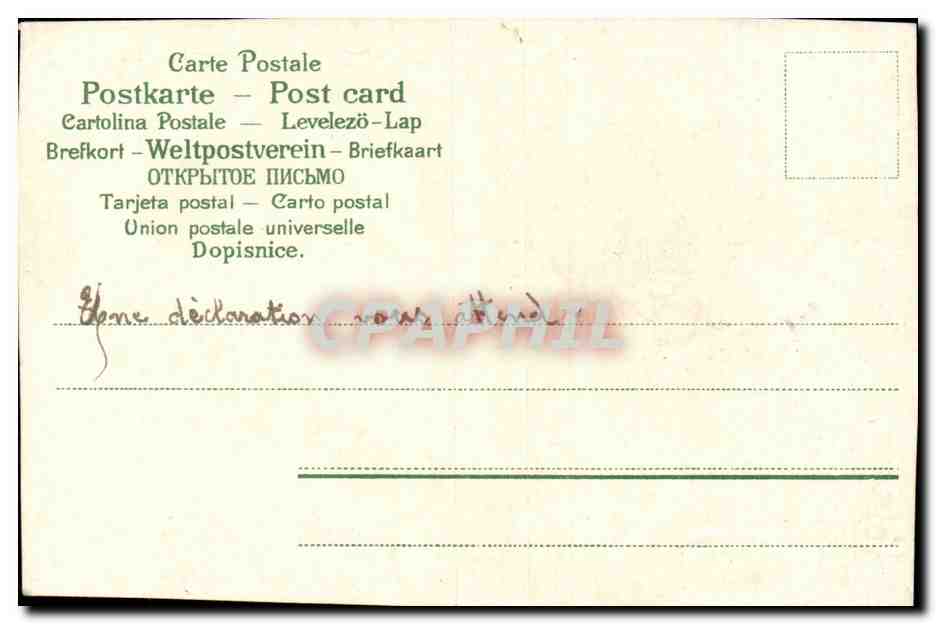 Carte Postale
Postkarte – Post card
Cartolina Postale — Levelezö-Lap
Brefkort – Weltpostverein – Briefkaart
ОТКРЫТОЕ ПИСЬМО
Tarjeta postal — Carto postal
Union postale universelle
Dopisnice.
Une déclaration vous attend :
CPAPHIL